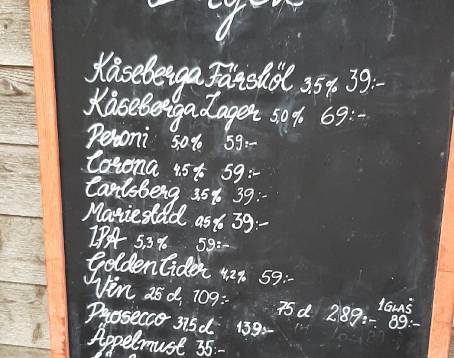 Kåseberga Färsköl 3,5% 39:-
Kåseberga Lager 5,0% 69:-
Peroni 5,0% 59:-
Corona 4,5% 59:-
Carlsberg 3,5% 39:-
Mariestad 0,5% 39:-
IPA 5,3% 59:-
Golden Cider 4,2% 59:-
Vin 25 cl, 109:- 75 cl 289:- 1 GLAS 89:-
Prosecco 37,5 cl 139:-
Äppelmust 35:-